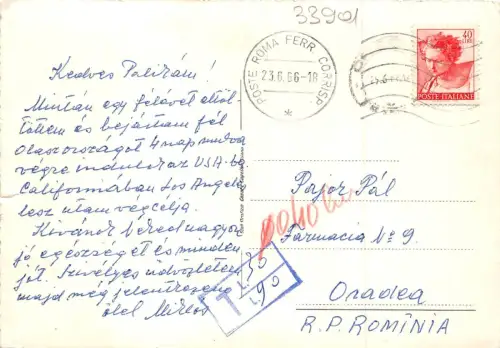 33901
POSTE ROMA FERR. CORRISP.
23.6.66-18
40
LIRE
POSTE ITALIANE
Kedves Palikám!
Miután egy félévet eltöl-
töttem és bejártam fél
Olaszországot 4 nap múlva
végre indulok az USA-ba
Californiában Los Angeles
lesz utam végcélja.
Kívánok Néked nagyon
jó egészséget és minden
jót. Szívélyes üdvözlettel
majd még jelentkezem
ölel Miklós
Pajor Pál
Farmacia No 9.
Oradea
R.P. ROMÎNIA
T
30
90